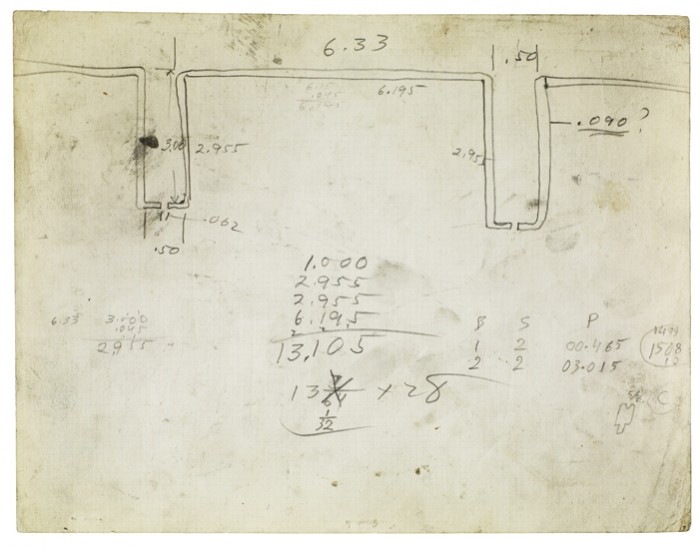 6.33
.50
6.195
.090?
3.00
2.955
2.955
.062
.50
1.000
2.955
2.955
6.195
13,105
13 1/32 x 28
6.33 3.000
.045
2,955
B S P
1 2 00.465
2 2 03.015
1508